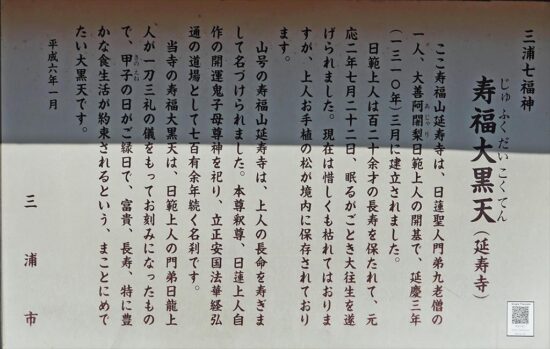 三浦七福神
じゅふくだいこくてん
寿福大黒天(延寿寺)
ここ寿福山延寿寺は、日蓮聖人門弟九老僧の
一人、大善阿闍梨日範上人の開基で、延慶三年
あじゃり
(一三一〇年)三月に建立されました。
日範上人は百二十余才の長寿を保たれて、元
応二年七月二十二日、眠るがごとき大往生を遂
げられました。現在は惜しくも枯れてはおりま
すが、上人お手植の松が境内に保存されており
ます。
山号の寿福山延寿寺は、上人の長命を寿ぎま
して名づけられました。本尊釈尊、日蓮上人自
作の開運鬼子母尊神を祀り、立正安国法華経弘
通の道場として七百有余年続く名刹です。
当寺の寿福大黒天は、日範上人の門弟日龍上
人が一刀三礼の儀をもってお刻みになったもの
で、甲子の日がご縁日で、富貴、長寿、特に豊
きのえね
かな食生活が約束されるという、まことにめで
たい大黒天です。
平成六年一月
三浦市